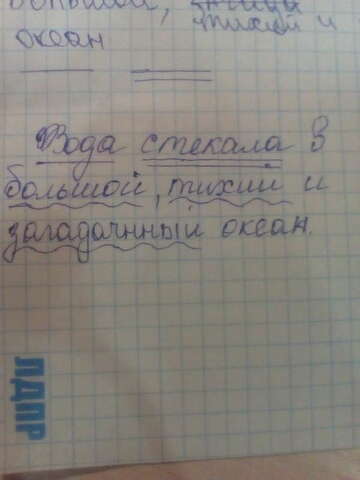 большой, тихий и
океан
Вода стекала в
большой, тихий и
загадачнный океан.
ЛДПР